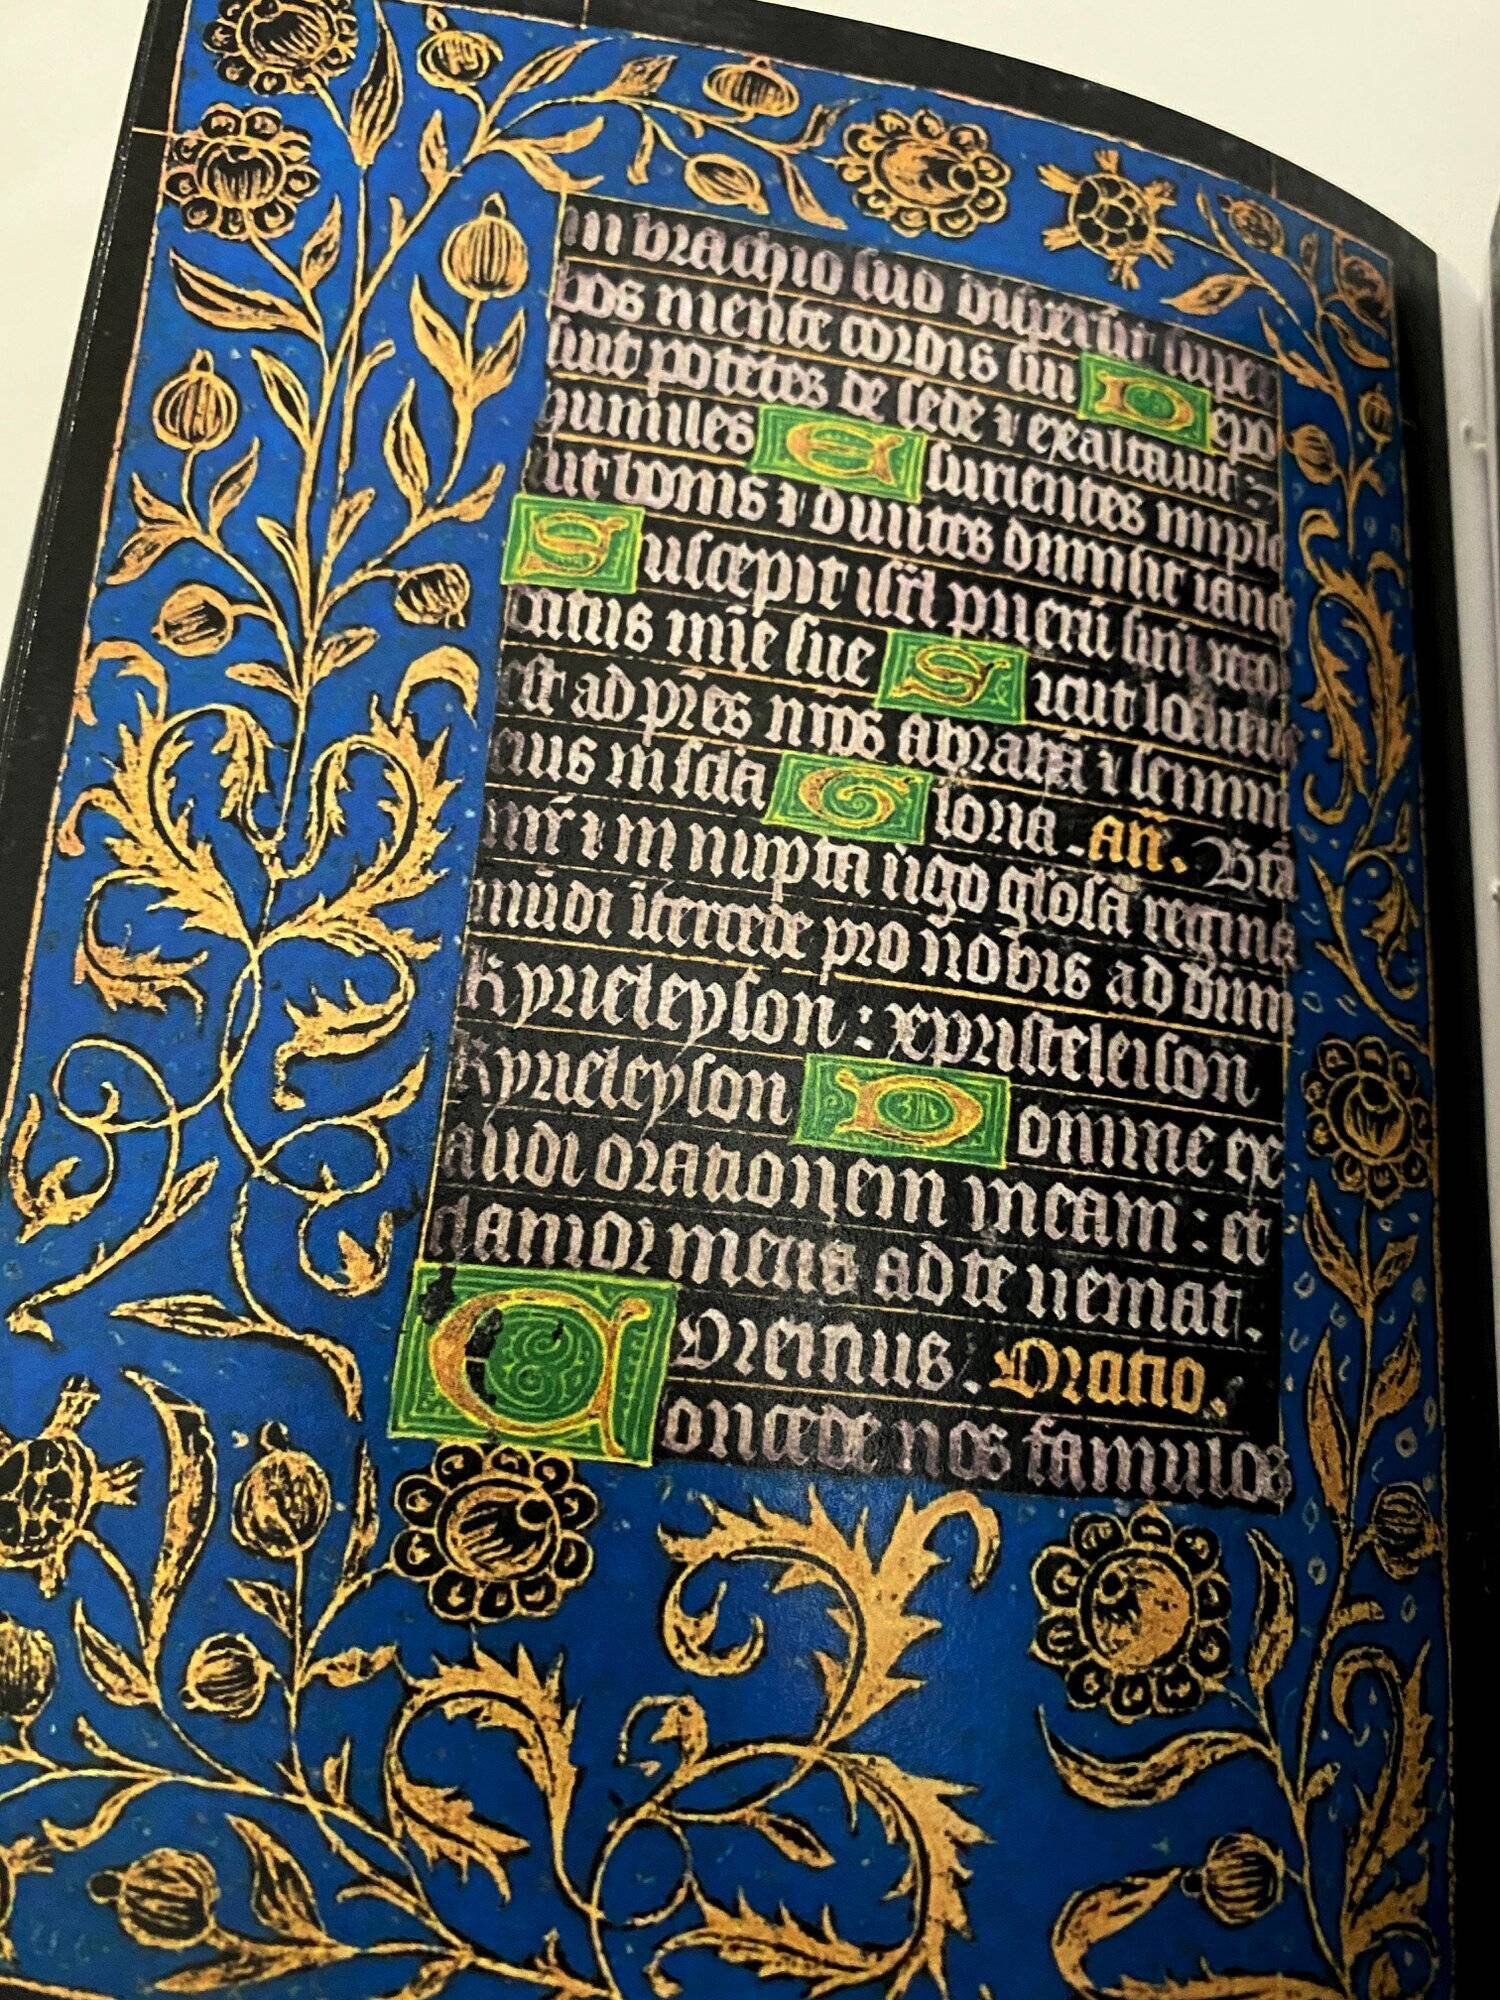 in brachio suo dispersit super
bos mente cordis sui Depo
suit potētes de sede ⁊ exaltauit :
humiles Esurientes imple
uit bonis ⁊ diuites dimisit iane
Suscepit isrl̄ puerū suū reco
datus mīe sue Sicut locutus
est ad pr̄es nr̄os abraħā ⁊ semini
eius in scl̄a Gloria . an̄. Btā
mr̄ ⁊ innupta ūgo gl̄osa regina
mūdi ītercede pro nobis ad dūm
Kyrieleyson : xpristeleison
kyrieleyson Domine ex
audi orationem meam : et
clamor meus ad te ueniat .
Oremus . Oratio .
Concede nos famulos